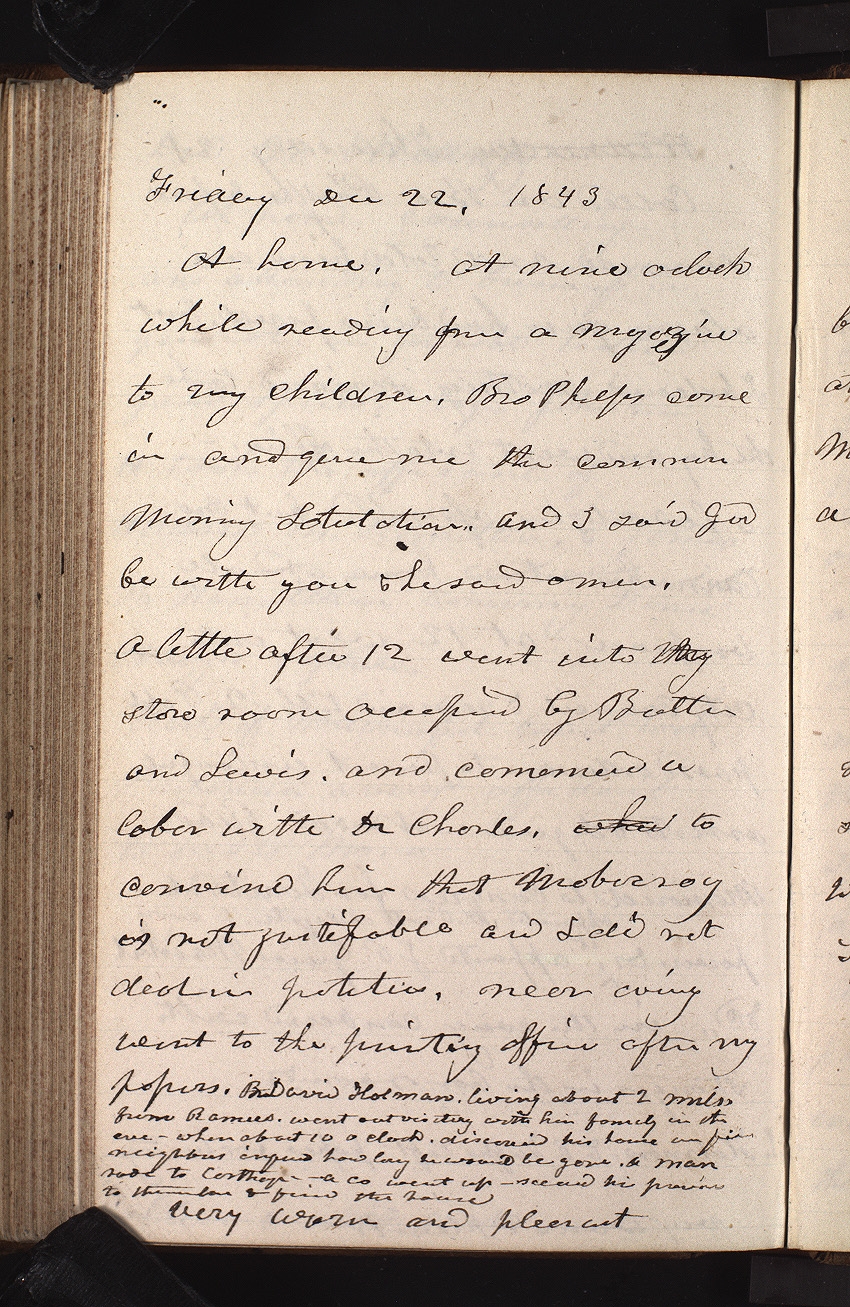 Friday Dec 22. 1843
At home. at nine oclock
while reading from a magazine
to my children. Bro Phelps come
in and gave me the common
Morning Salutation.. and I said God
be with you & he said amen.
A little after 12 went into my
store room occupied by Butler
and Lewis. and commenced a
labor with Dr Charles. to
convince him that Mobocracy
is not justifiable and I did not
deal in politics. near eving
went to the printing office after my
papers. Bro David Holman. living about 2 miles
from Ramees. went out visiting with his family in the
eve - when about 10 o clock. discoverd his house on fire
neighbors inqured how long he would be gone. a man
rode to Carthage - a co went up - secured his provision
to themselves & fired the house
very warm and pleasant